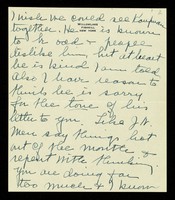 I wish we could see Kaufman
together. He is known
to be odd & people
dislike him, but at heart
he is kind I am told
Also I have reason to
think he is sorry
for the tone of his
letter to you. Like J.H.
Men say things but
out of the mouth &
repent with thinking
you are doing far
too much & I know